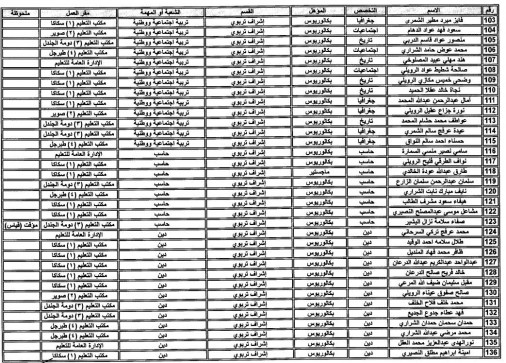 رقم الاسم التخصص المؤهل القسم الشعبة أو المهمة مقر العمل ملحوظة
103 فايز مبرد مطير الشمري جغرافيا بكالوريوس إشراف تربوي تربية اجتماعية ووطنية مكتب التعليم (١) سكاكا
104 سعود فهد عواد الدغام اجتماعيات بكالوريوس إشراف تربوي تربية اجتماعية ووطنية مكتب التعليم (٢) صوير
105 منصور عواد قاسم الدربي تاريخ بكالوريوس إشراف تربوي تربية اجتماعية ووطنية مكتب التعليم (٣) دومة الجندل
106 محمد عوض حامد الشراري اجتماعيات بكالوريوس إشراف تربوي تربية اجتماعية ووطنية مكتب التعليم (٤) طبرجل
107 هند مهلي عيد المصلوخي تاريخ بكالوريوس إشراف تربوي تربية اجتماعية ووطنية الإدارة العامة للتعليم
108 صالحة شطيط عواد الرويلي اجتماعيات بكالوريوس إشراف تربوي تربية اجتماعية ووطنية مكتب التعليم (١) سكاكا
109 وضحى خميس مكازي الرويلي تاريخ بكالوريوس إشراف تربوي تربية اجتماعية ووطنية مكتب التعليم (١) سكاكا
110 نجاة خالد عقلا الحميد تاريخ بكالوريوس إشراف تربوي تربية اجتماعية ووطنية مكتب التعليم (١) سكاكا
111 آمال عبدالرحمن عبدالله المحمد جغرافيا بكالوريوس إشراف تربوي تربية اجتماعية ووطنية مكتب التعليم (١) سكاكا
112 نورة جزاع عقيل الرويلي جغرافيا بكالوريوس إشراف تربوي تربية اجتماعية ووطنية مكتب التعليم (٢) صوير
113 عواطف محمد حشام المحمد تاريخ بكالوريوس إشراف تربوي تربية اجتماعية ووطنية مكتب التعليم (٣) دومة الجندل
114 عيدة عرفج سالم الشمري جغرافيا بكالوريوس إشراف تربوي تربية اجتماعية ووطنية مكتب التعليم (٣) دومة الجندل
115 حسناء احمد سالم النواق جغرافيا بكالوريوس إشراف تربوي تربية اجتماعية ووطنية مكتب التعليم (٤) طبرجل
116 سامي نصير ملسي السمارة حاسب بكالوريوس إشراف تربوي حاسب الإدارة العامة للتعليم
117 نواف الطرقي فليح الرويلي حاسب بكالوريوس إشراف تربوي حاسب مكتب التعليم (١) سكاكا
118 طارق عبدالله عودة الخالدي حاسب ماجستير إشراف تربوي حاسب مكتب التعليم (١) سكاكا
119 سلمان عبدالرحمن سلمان الزارع حاسب بكالوريوس إشراف تربوي حاسب مكتب التعليم (٣) دومة الجندل
120 نايف مبارك ثابت الشراري حاسب بكالوريوس إشراف تربوي حاسب مكتب التعليم (٤) طبرجل
121 هيفاء سعود مشرف الطالب حاسب بكالوريوس إشراف تربوي حاسب مكتب التعليم (١) سكاكا
122 مشاعل موسى عبدالمصلح النصيري حاسب بكالوريوس إشراف تربوي حاسب مكتب التعليم (١) سكاكا
123 صفاء سلامة نزال البشير حاسب بكالوريوس إشراف تربوي حاسب مكتب التعليم (٣) دومة الجندل مؤقت (قياس)
124 محمد عرفج تركي السرحاني دين بكالوريوس إشراف تربوي دين الإدارة العامة للتعليم
125 طلال سلامه احمد الوقيد دين بكالوريوس إشراف تربوي دين مكتب التعليم (١) سكاكا
126 ظافر محمد فهاد المنديل دين بكالوريوس إشراف تربوي دين مكتب التعليم (١) سكاكا
127 عبدالواحد عبدالكريم عبدالله الدرعان دين بكالوريوس إشراف تربوي دين مكتب التعليم (١) سكاكا
128 خالد فريح صالح الدرعان دين بكالوريوس إشراف تربوي دين مكتب التعليم (١) سكاكا
129 مقبل سليمان ضيف الله المرعي دين بكالوريوس إشراف تربوي دين مكتب التعليم (١) سكاكا
130 صالح صفوق عيناء الرويلي دين بكالوريوس إشراف تربوي دين مكتب التعليم (٢) صوير
131 محمد خلف فلاح الخلف دين بكالوريوس إشراف تربوي دين مكتب التعليم (٣) دومة الجندل
132 فهد عطاء جدوع الجديع دين بكالوريوس إشراف تربوي دين مكتب التعليم (٣) دومة الجندل
133 حمدان سحمان حمدان الشراري دين بكالوريوس إشراف تربوي دين مكتب التعليم (٤) طبرجل
134 محمد مرضي عبدالله الشراري دين بكالوريوس إشراف تربوي دين مكتب التعليم (٤) طبرجل
135 نورالهدى عبدالعزيز محمد العقل دين بكالوريوس إشراف تربوي دين الإدارة العامة للتعليم
136 امينة ابراهيم مطلق النصيري دين بكالوريوس إشراف تربوي دين مكتب التعليم (١) سكاكا